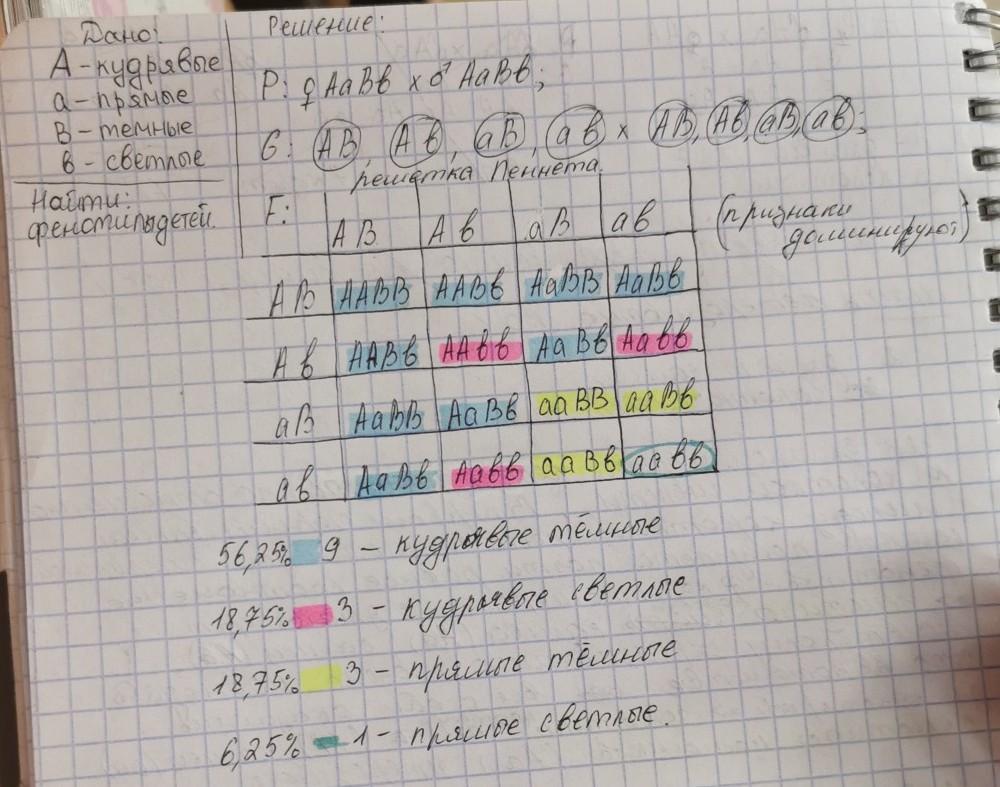 Дано:
А - кудрявые
а - прямые
В - темные
в - светлые
Найти:
фенотипы детей.
Решение:
Р: ♀ АаВв × ♂ АаВв;
G: АВ, Ав, аВ, ав × АВ, Ав, аВ, ав;
решетка Пеннета.
F:
АВ Ав аВ ав
(признаки
доминируют)
АВ ААВВ ААВв АаВВ АаВв
Ав ААВв ААвв АаВв Аавв
аВ АаВВ АаВв ааВВ ааВв
ав АаВв Аавв ааВв аавв
56,25% 9 - кудрявые тёмные
18,75% 3 - кудрявые светлые
18,75% 3 - прямые тёмные
6,25% 1 - прямые светлые.